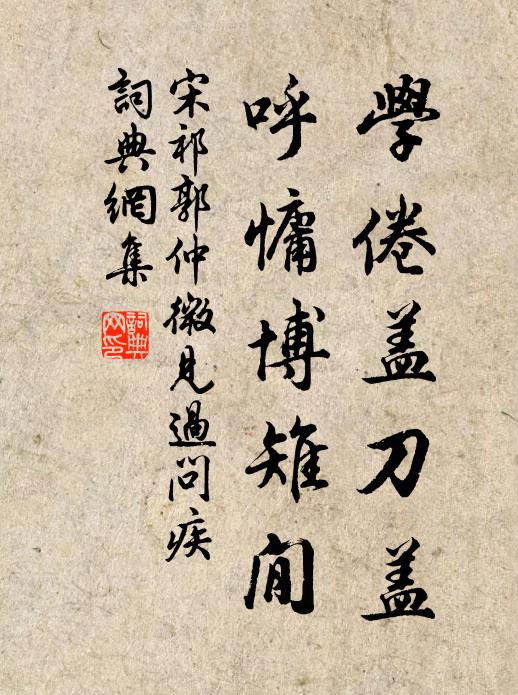 學倦盖刀盖
呼慵博雉閒
宋祁郭仲微見過問疾
詞典網集
詞典網印